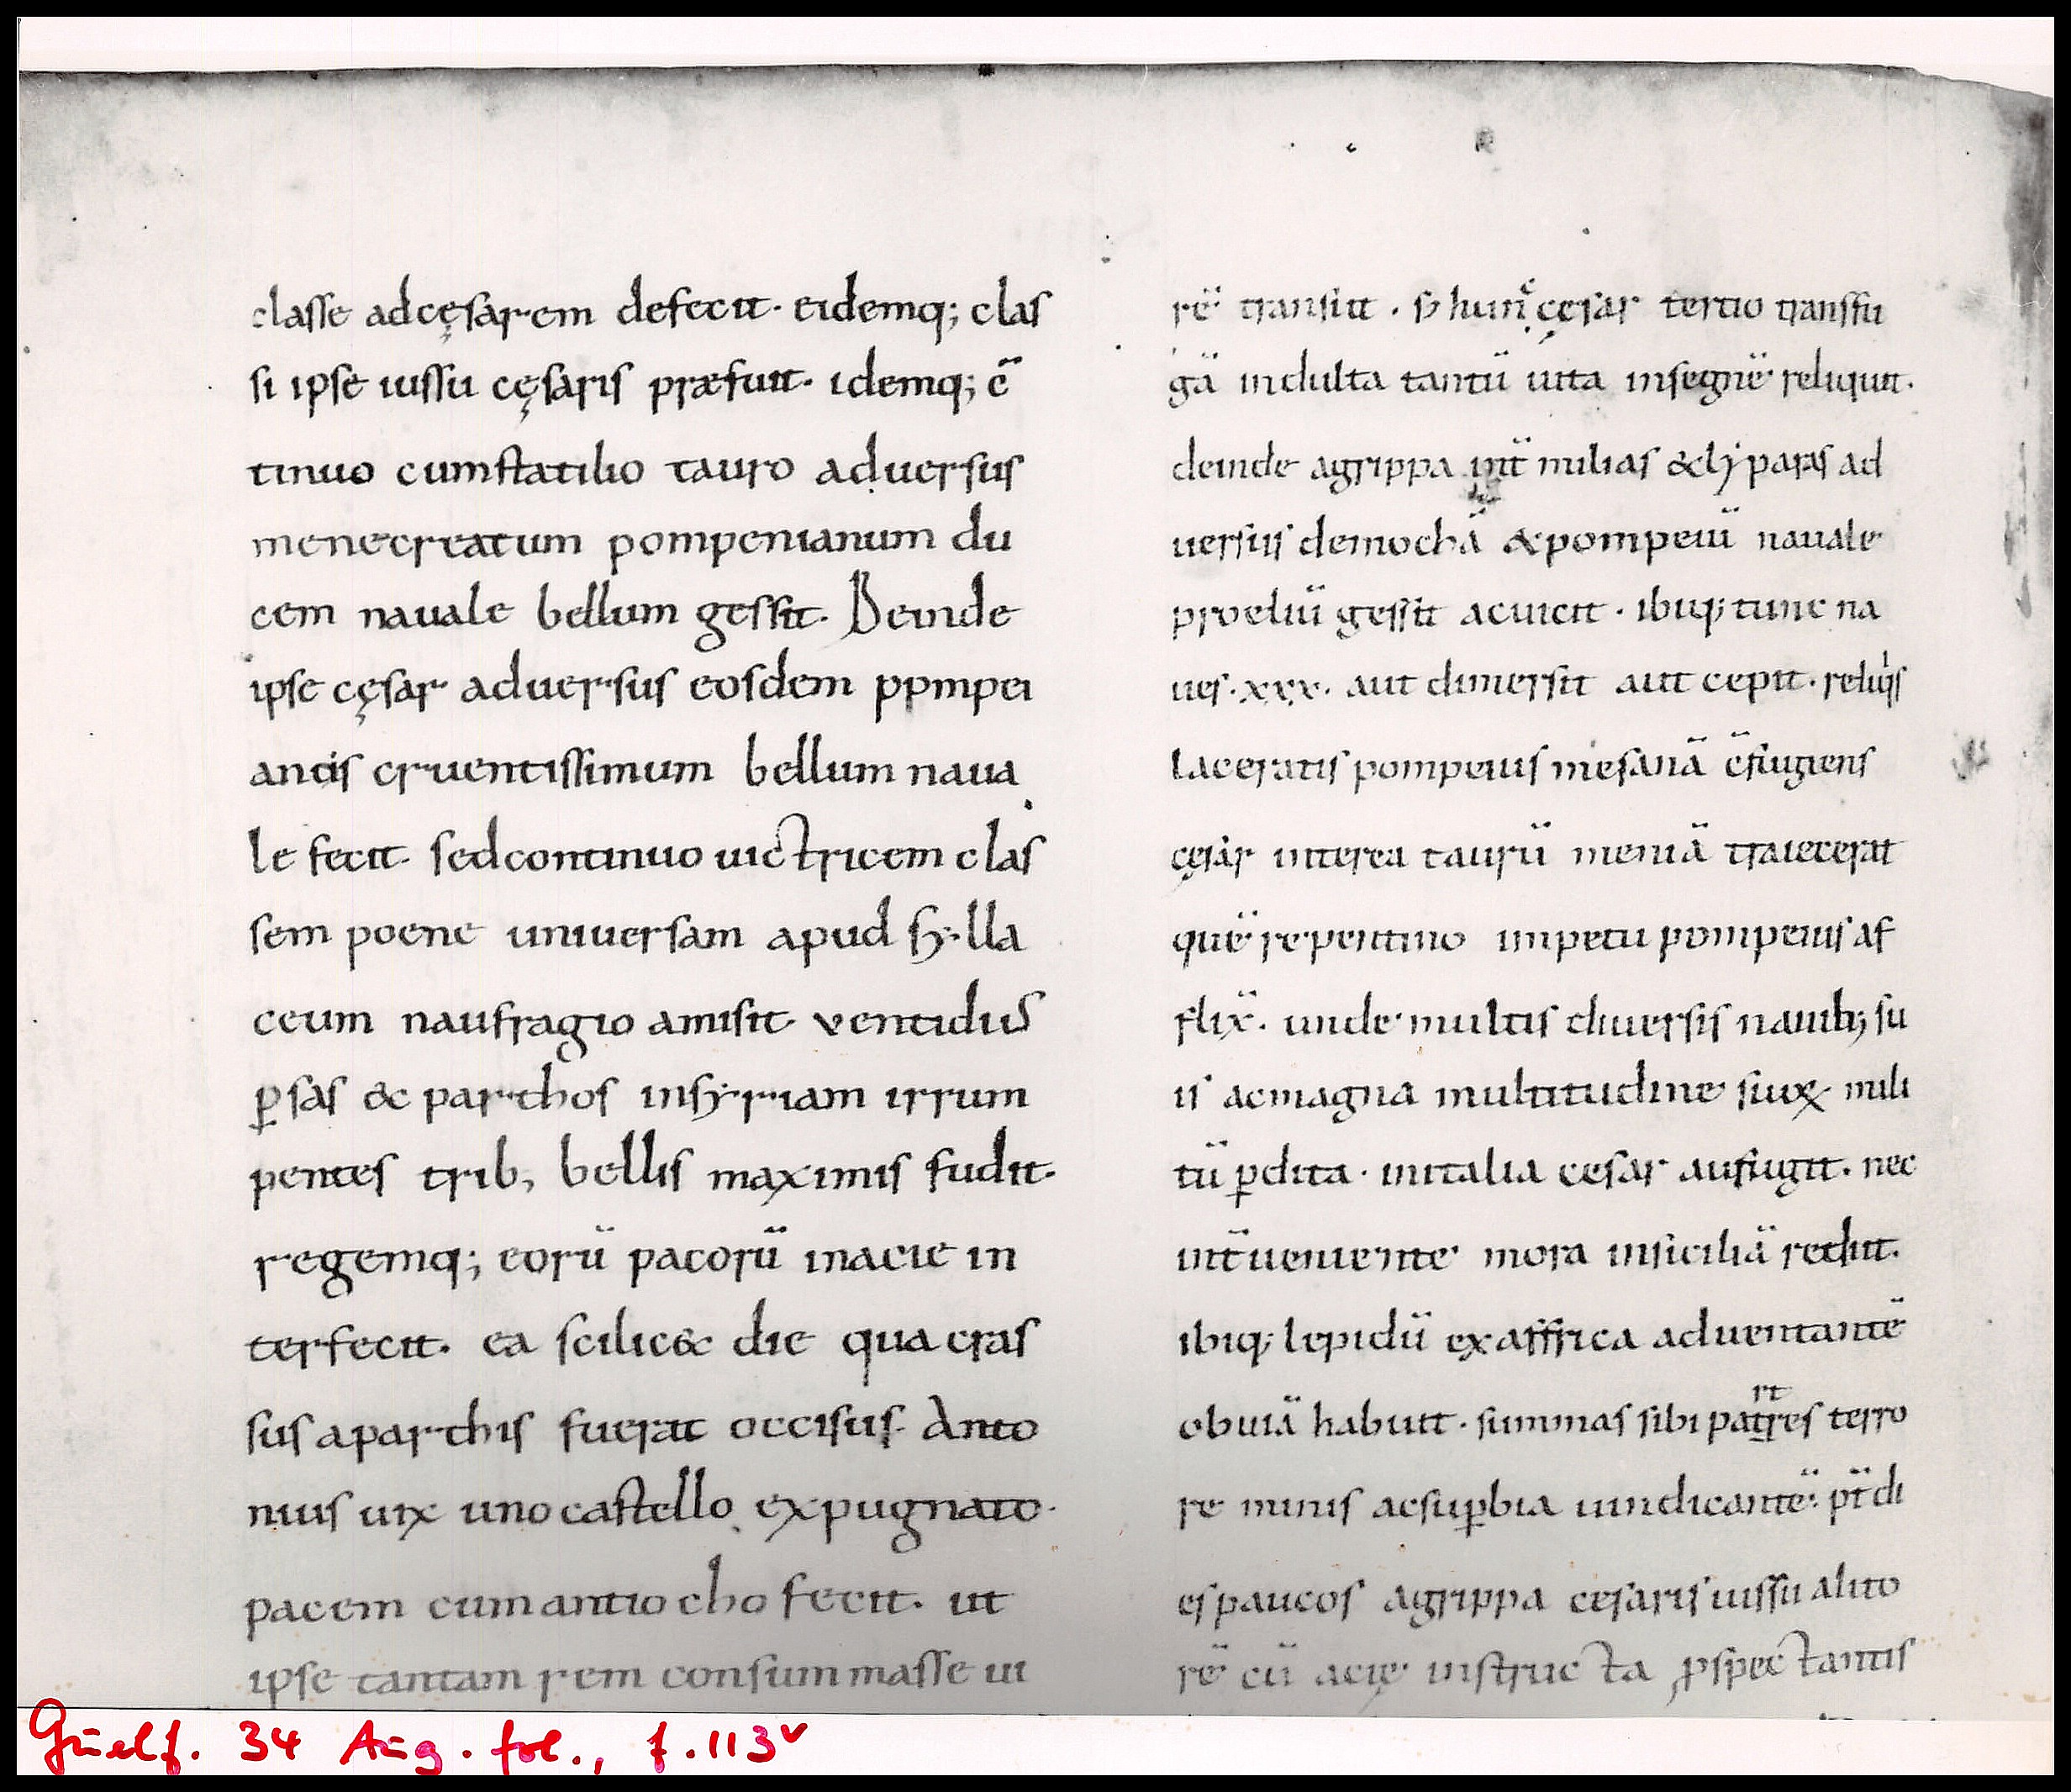 classe adcęsarem defecit. eidemq; clas
si ipse iussu cęsaris præfuit. idemq; c̄
tinuo cumstatilio tauro aduersus
menecreatum pompenianum du
cem nauale bellum gessit. Deinde
ipse cęsar aduersus eosdem ppmpei
anos cruentissimum bellum naua
le fecit. sedcontinuo uictricem clas
sem poene uniuersam apud sylla
ceum naufragio amisit. ventidius
p̱sas & parthos insyriam irrum
pentes trib; bellis maximis fudit.
regemq; eorū pacorū inacie in
terfecit. ea scilic& die qua cras
sus aparthis fuerat occisus. Anto
nius uix uno castello expugnato.
pacem cumantiocho fecit. ut
ipse tantam rem consummasse ui
rē transiit. s; hunc cęsar tertio transfu
gā indulta tantū uita insegnē reliquit.
deinde agrippa int̄ milias &liparas ad
uersus demochā &pompeiū nauale
proeliū gessit acuicit. ibiq; tunc na
ues. xxx. aut dimersit aut cepit. reliqis
laceratis pompeius mesanā c̄fugiens
cęsar interea taurū meniā traiecerat
quē repentino impetu pompeius af
flix̄. unde multis diuersis nauib; su
is acmagna multitudine suoꝝ mili
tū p̱dita. initalia cesar aufugit. nec
int̄ueniente mora insiciliā rediit.
ibiq; lepidū exaffrica aduentantē
obuiā habuit. summas sibi patres terro
rt
re minis acsup̱bia uindicantē. pt̄di
es paucos agrippa cesaris iussu a lito
rē cū acię instructa p̱spectantis
Guelf. 34 Aug. fol., f. 113v